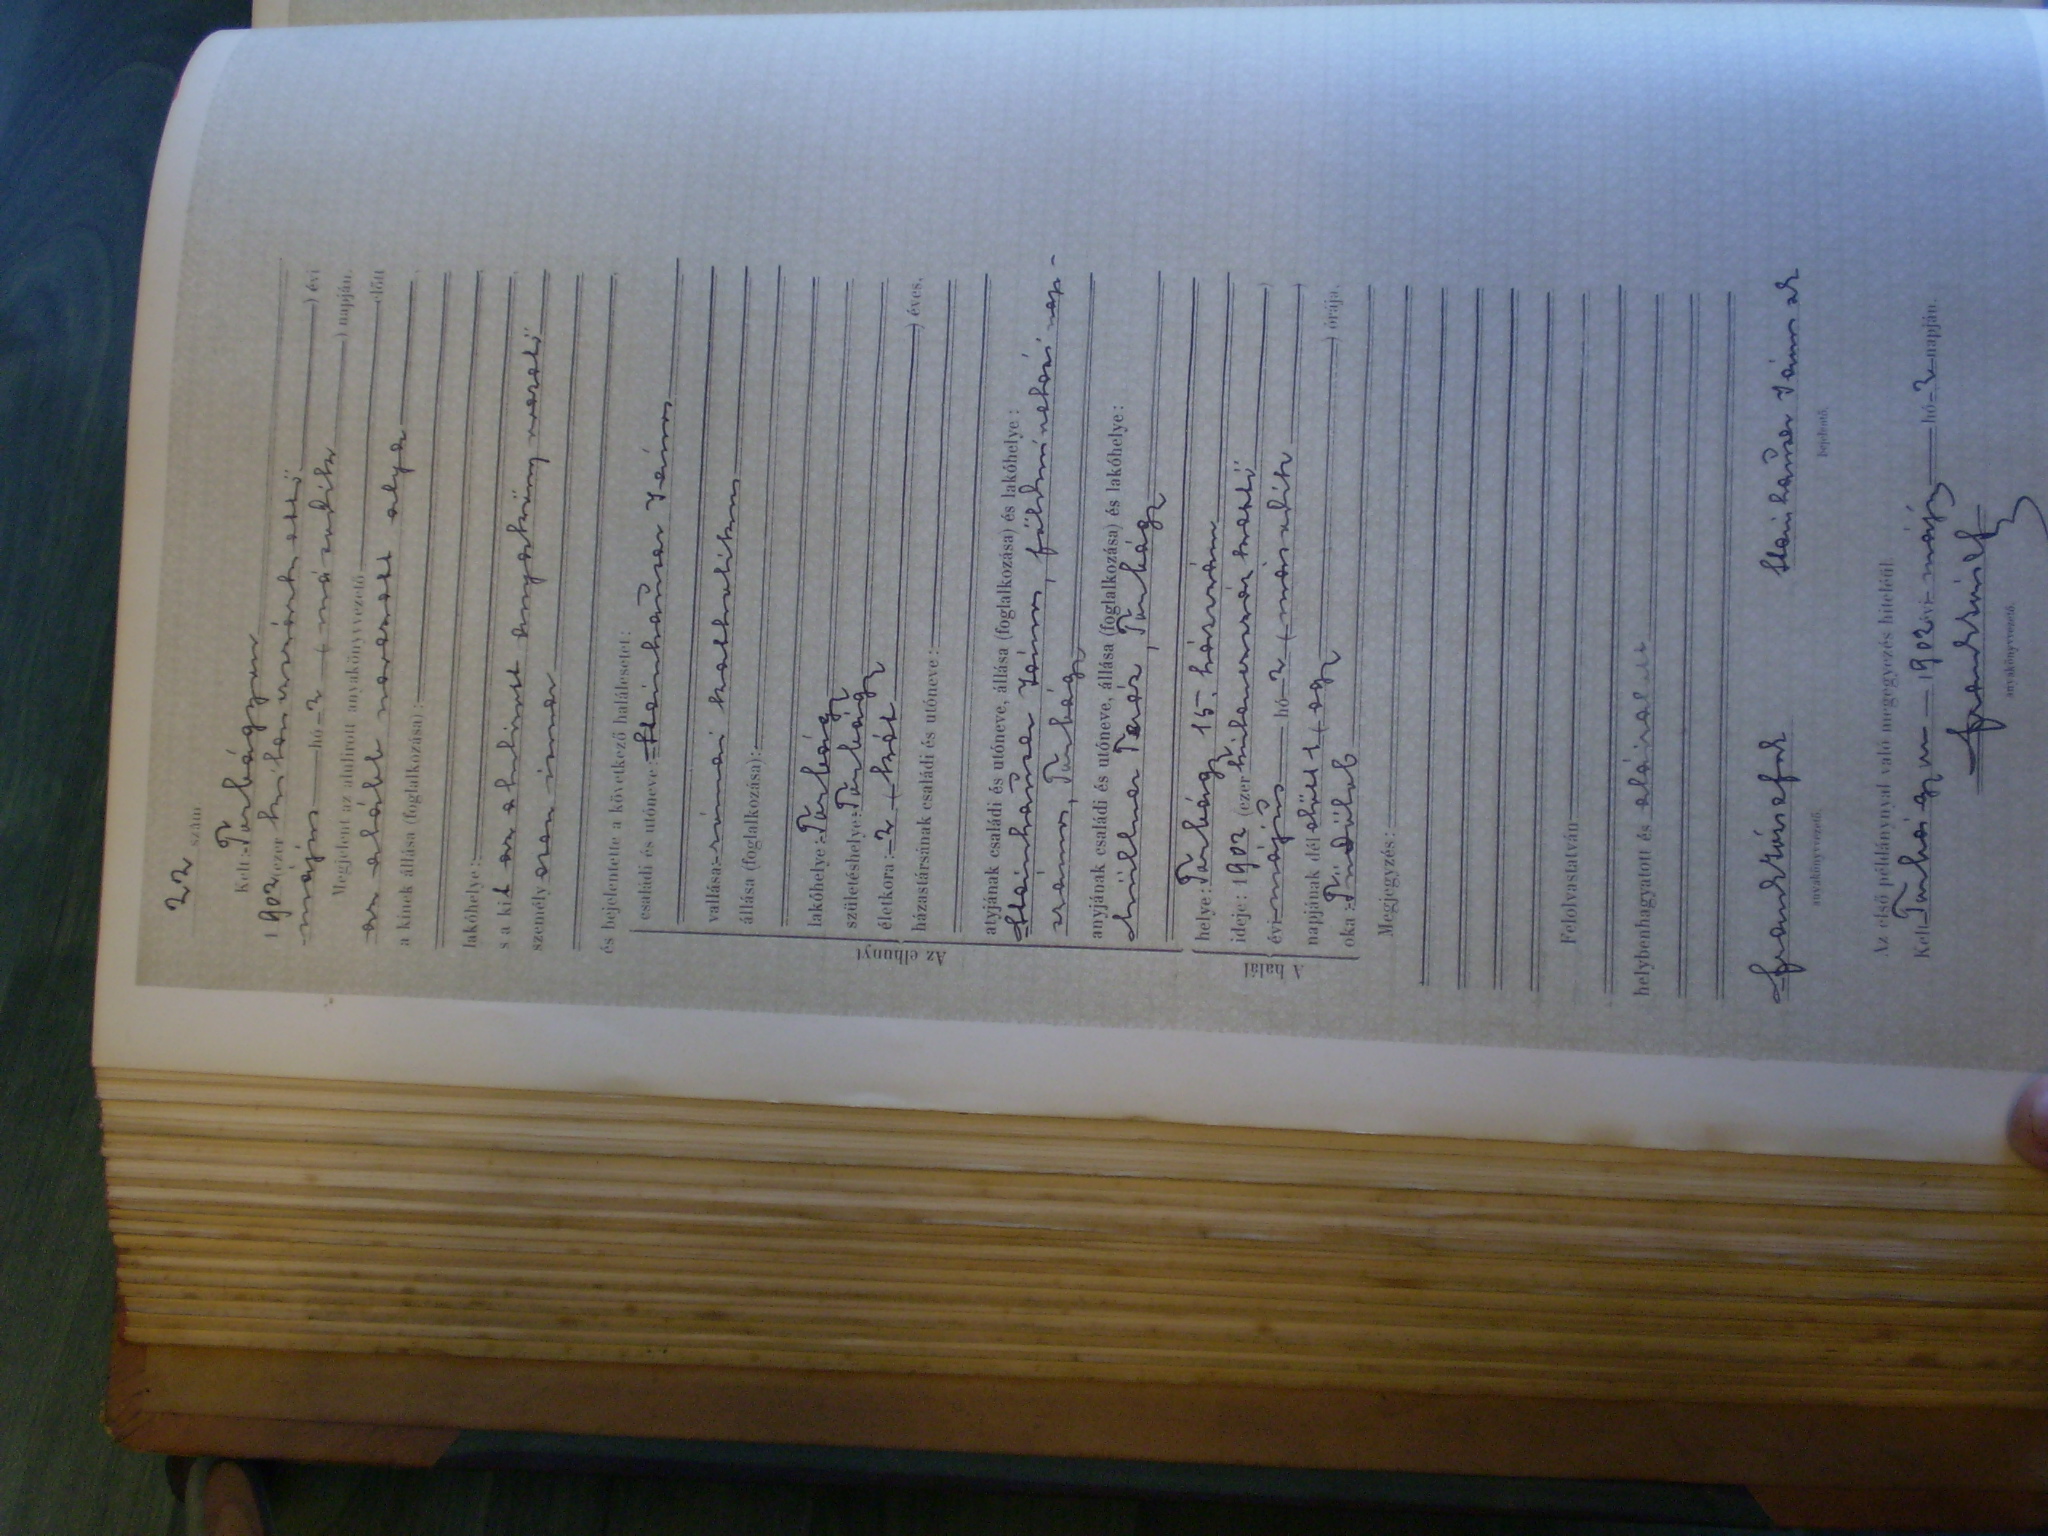 22 szám
Kelt: Torbágyon
1902 (ezer kilenczszázkettő) évi
május hó 2 (második) napján.
Megjelent az alulirott anyakönyvvezető előtt
az alább nevezett atya
a kinek állása (foglalkozása):
lakóhelye:
s a kit az alulirott anyakönyvvezető
személyesen ismer
és bejelentette a következő halálesetet:
Az elhunyt
családi és utóneve: Steinhauser János
vallása: római katholikus
állása (foglalkozása):
lakóhelye: Torbágy
születéshelye: Torbágy
életkora: 2 (két) éves,
házastársának családi és utóneve:
atyjának családi és utóneve, állása (foglalkozása) és lakóhelye:
Steinhauser János, földmívelési nap-
számos, Torbágy
anyjának családi és utóneve, állása (foglalkozása) és lakóhelye:
Teréz, Torbágy
A halál
helye: Torbágy 15. házszám
ideje: 1902 (ezer kilenczszázkettő)
évi május hó 2 (második)
napjának dél előtt 1 (egy) órája,
oka: Tüdőlob
Megjegyzés:
Felolvastatván
helybenhagyatott és aláiratott
anyakönyvvezető.
Steinhauser János
bejelentő.
Az első példánynyal való megegyezés hiteléül.
Kelt Torbágyon 1902 évi május hó 2 napján.
anyakönyvvezető.